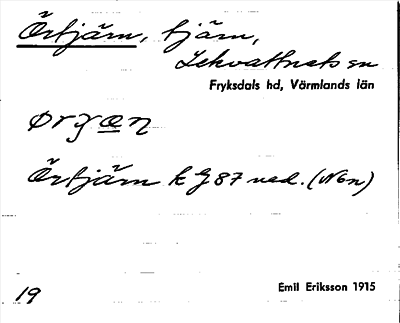 Örtjärn, tjärn,
Lekvattnets sn
Fryksdals hd, Värmlands län
Örtjärn k G 87 ned. (Nön)
Emil Eriksson 1915
19